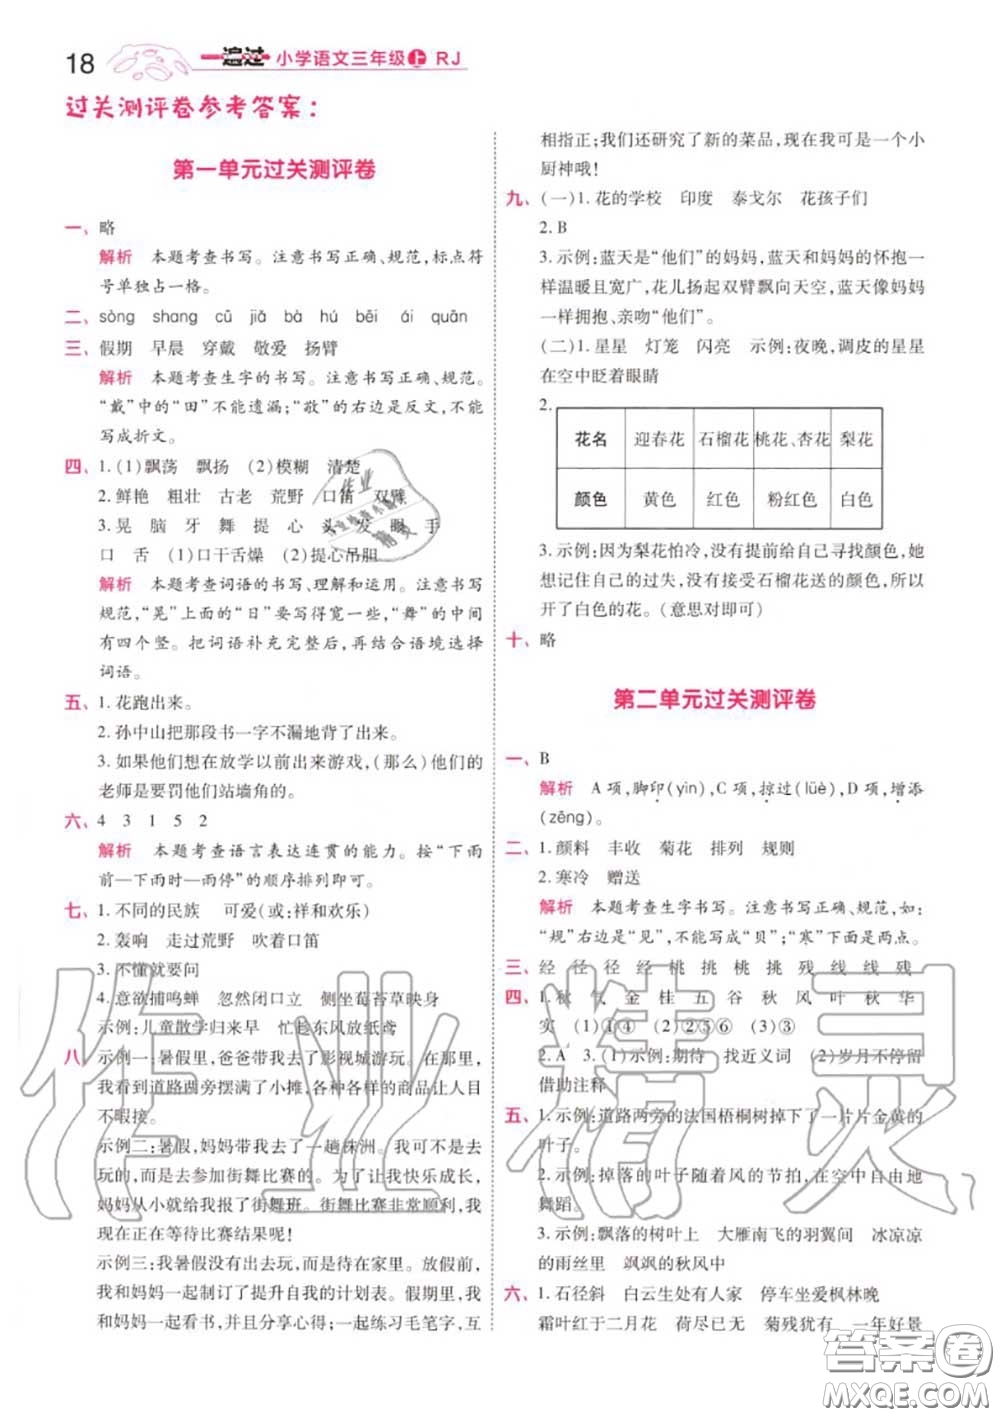 18
一遍过 小学语文三年级上 RJ
过关测评卷参考答案：
第一单元过关测评卷
一、略
解析 本题考查书写。注意书写正确、规范,标点符
号单独占一格。
二、sòng shang cū jiǎ bà hú bēi ái quān
三、假期 早晨 穿戴 敬爱 扬臂
解析 本题考查生字的书写。注意书写正确、规范。
“戴”中的“田”不能遗漏;“敬”的右边是反文,不能
写成折文。
四、1.(1)飘荡 飘扬 (2)模糊 清楚
2.鲜艳 粗壮 古老 荒野 口笛 双臂
3.晃 脑 牙 舞 提 心 头 发 眼 手
口 舌 (1)口干舌燥 (2)提心吊胆
解析 本题考查词语的书写、理解和运用。注意书写
规范,“晃”上面的“日”要写得宽一些,“舞”的中间
有四个竖。把词语补充完整后,再结合语境选择
词语。
五、1.花跑出来。
2.孙中山把那段书一字不漏地背了出来。
3.如果他们想在放学以前出来游戏,(那么)他们的
老师是要罚他们站墙角的。
六、4 3 1 5 2
解析 本题考查语言表达连贯的能力。按“下雨
前—下雨时—雨停”的顺序排列即可。
七、1.不同的民族 可爱(或:祥和欢乐)
2.轰响 走过荒野 吹着口笛
3.不懂就要问
4.意欲捕鸣蝉 忽然闭口立 侧坐莓苔草映身
示例:儿童散学归来早 忙趁东风放纸鸢
八、示例一:暑假里,爸爸带我去了影视城游玩。在那里,
我看到道路两旁摆了小摊,各种各样的商品让人目
不暇接。
示例二:暑假,妈妈带我去了一趟株洲。我不是去
玩的,而是去参加街舞比赛的。为了让我快乐成长,
妈妈从小就给我报了街舞班。街舞比赛非常顺利,我
现在正在等待比赛结果呢!
示例三:我暑假没有出去玩,而是选择待在家里。
我和妈妈一起制订了提升自我的计划表。例如,我
和妈妈一起看书,并且分享心得;一起练习毛笔字,互
相指正;我们还研究了新的菜品,现在我可是一个小
厨神哦!
九、(一)1.花的学校 印度 泰戈尔 花孩子们
2.B
3.示例:蓝天是“他们”的妈妈,蓝天和妈妈的怀抱一
样温暖且宽广,花儿扬起双臂飘向天空,蓝天像妈妈
一样拥抱、亲吻“他们”。
(二)1.星星 灯笼 闪亮 示例:夜晚,调皮的星星
在空中眨着眼睛
2.
花名 迎春花 石榴花 桃花、杏花 梨花
颜色 黄色 红色 粉红色 白色
3.示例:因为梨花怕冷,没有提前给自己寻找颜色,她
想记住自己的过失,没有接受石榴花送的颜色,所以
开了白色的花。(意思对即可)
十、略
第二单元过关测评卷
一、B
解析 A项,脚印(yìn),C项,掠过(lüè),D项,增添
(zēng)。
二、1.颜料 丰收 菊花 排列 规则
2.寒冷 赠送
解析 本题考查生字书写。注意书写正确、规范,如:
“规”右边是“见”,不能写成“贝”;“寒”下面是两点。
三、经 径 径 经 桃 挑 桃 挑 残 线 线 残
四、1.秋 气 金 桂 五 谷 秋 风 叶 秋 华
实 (1)①④ (2)②⑤⑥ (3)③
2.A 3.(1)示例:期待 找近义词 (2)岁月不停留
借助注释
五、1.示例:道路两旁的法国梧桐树掉下了一片片金黄的
叶子。
2.示例:掉落的叶子随着风的节拍,在空中自由地
舞蹈。
3.示例:飘落的树叶上 大雁南飞的羽翼间 冰凉凉
的雨丝里 飒飒的秋风中
六、1.石径斜 白云生处有人家 停车坐爱枫林晚
霜叶红于二月花 荷尽已无 菊残犹有 一年好景
作业精灵
答案圈
MXQE.COM